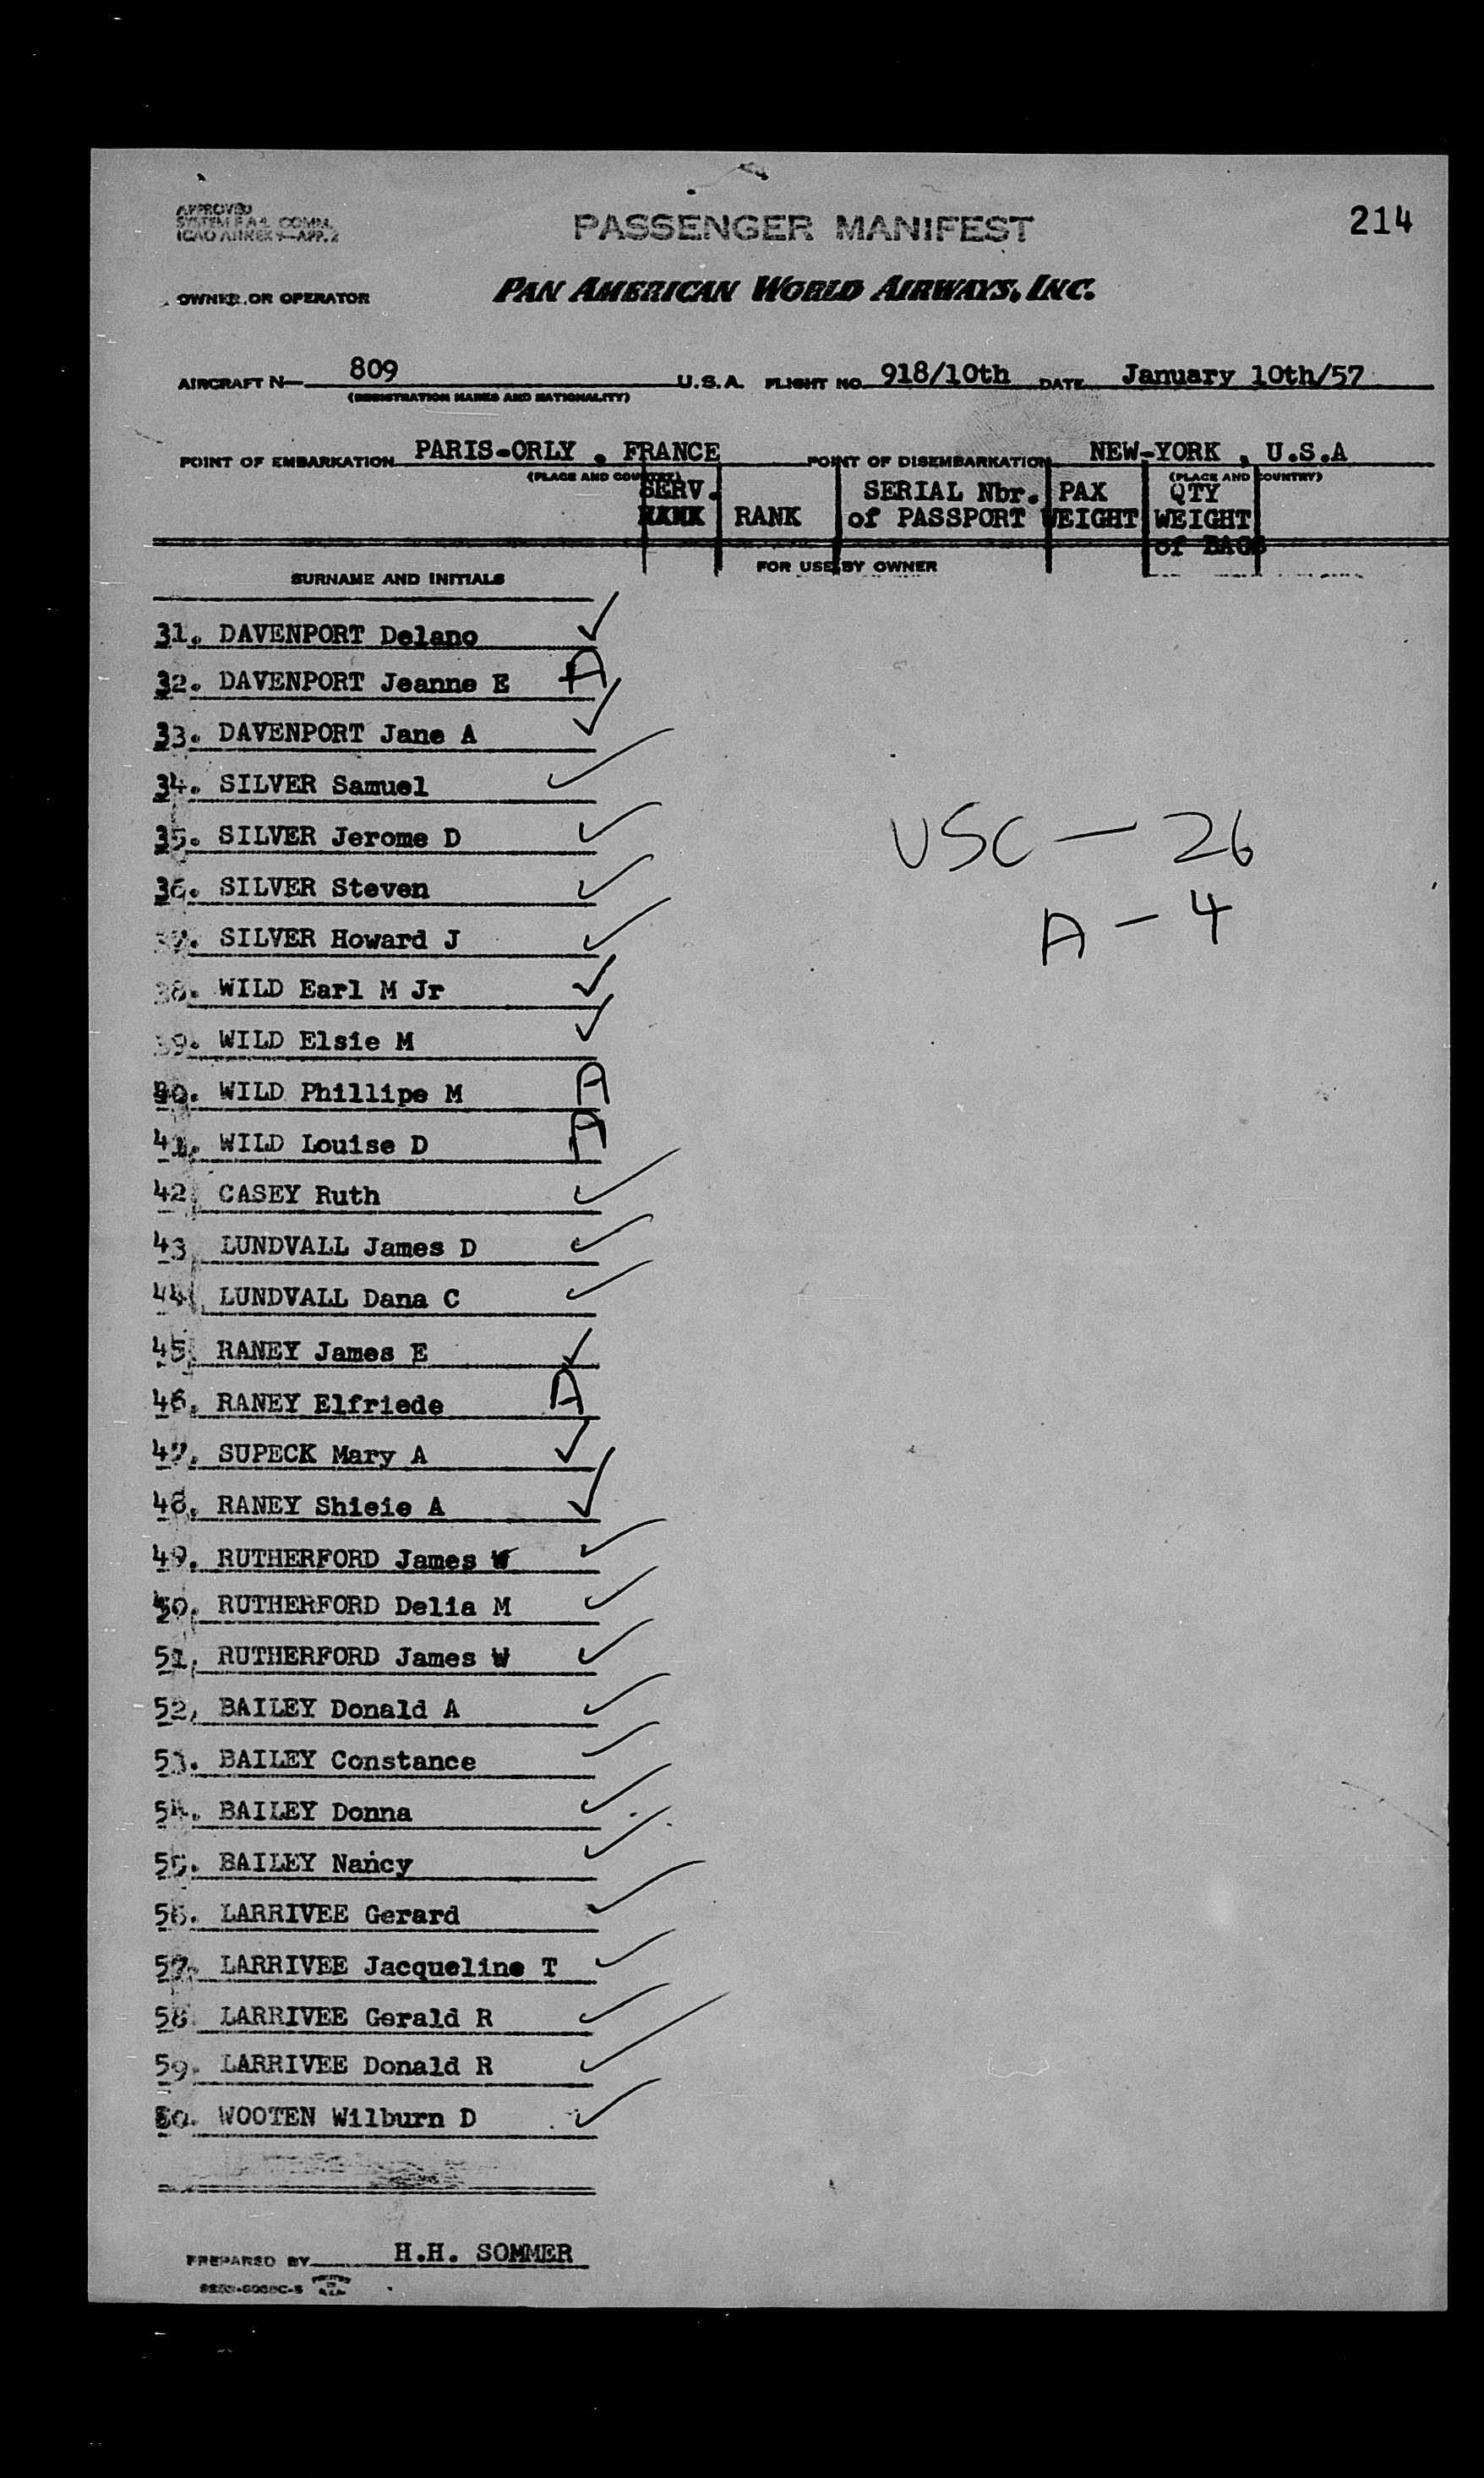 APPROVED
SYSTEM F.A.L. COMM.
ICAO ANNEX 9—APP. 2
PASSENGER MANIFEST
214
OWNER OR OPERATOR PAN AMERICAN WORLD AIRWAYS, INC.
AIRCRAFT N— 809 U.S.A. FLIGHT NO. 918/10th DATE January 10th/57
(REGISTRATION MARKS AND NATIONALITY)
POINT OF EMBARKATION PARIS-ORLY . FRANCE POINT OF DISEMBARKATION NEW-YORK , U.S.A
(PLACE AND COUNTRY) (PLACE AND COUNTRY)
SERV. SERIAL Nbr. PAX QTY
RANK RANK of PASSPORT WEIGHT WEIGHT
of BAGS
FOR USE BY OWNER
SURNAME AND INITIALS
31. DAVENPORT Delano ✓
32. DAVENPORT Jeanne E A
33. DAVENPORT Jane A ✓
34. SILVER Samuel ✓
35. SILVER Jerome D ✓
USC — 26
36. SILVER Steven ✓
A — 4
37. SILVER Howard J ✓
38. WILD Earl M Jr ✓
39. WILD Elsie M ✓
40. WILD Phillipe M A
41. WILD Louise D A
42. CASEY Ruth ✓
43. LUNDVALL James D ✓
44. LUNDVALL Dana C ✓
45. RANEY James E ✓
46. RANEY Elfriede A
47. SUPECK Mary A ✓
48. RANEY Shieie A ✓
49. RUTHERFORD James W ✓
50. RUTHERFORD Delia M ✓
51. RUTHERFORD James W ✓
52. BAILEY Donald A ✓
53. BAILEY Constance ✓
54. BAILEY Donna ✓
55. BAILEY Nancy ✓
56. LARRIVEE Gerard ✓
57. LARRIVEE Jacqueline T ✓
58. LARRIVEE Gerald R ✓
59. LARRIVEE Donald R ✓
60. WOOTEN Wilburn D ✓
PREPARED BY H.H. SOMMER